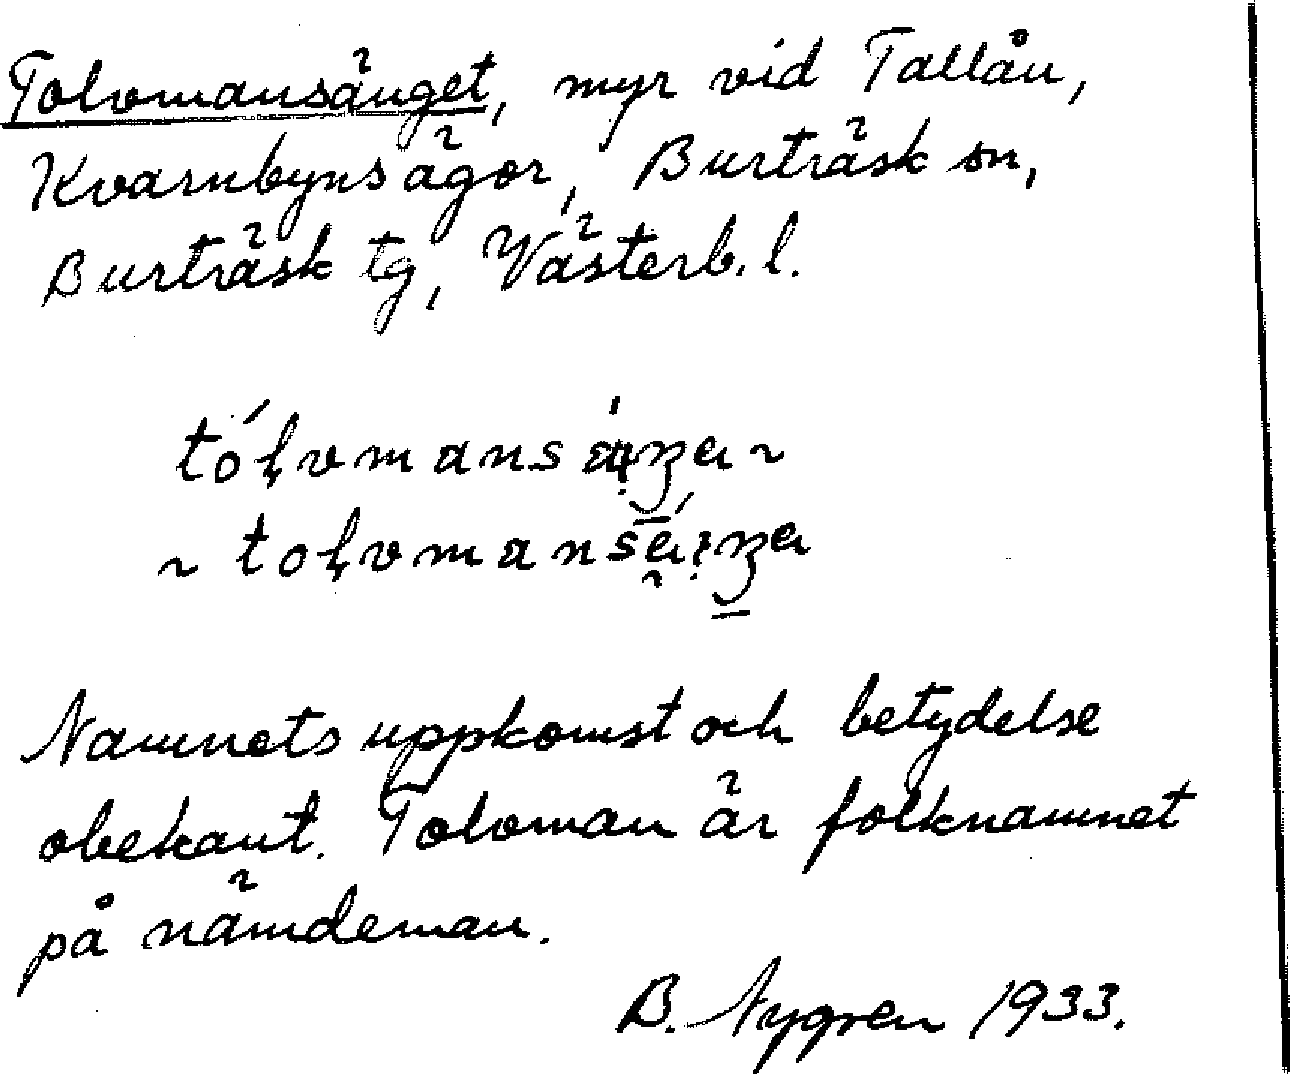 Tolvmansänget, myr vid Tallån,
Kvarnbyns ägor, Burträsk sn,
Burträsk tg, Västerb. l.
Namnets uppkomst och betydelse
obekant. Tolvman är folknamnet
på nämdeman.
B. Nygren 1933.